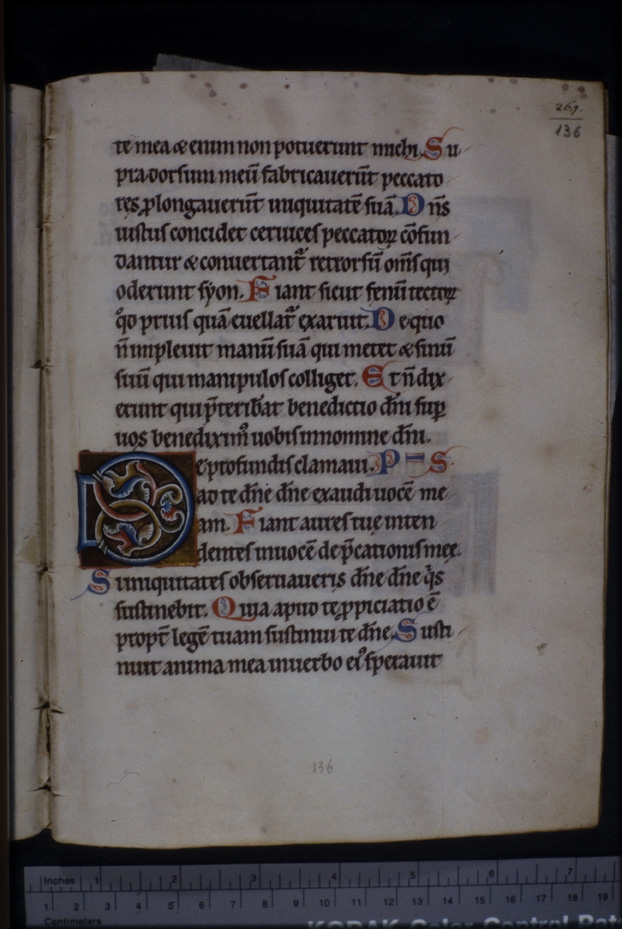 269.
136
te mea & enim non potuerunt michi. Su
pra dorsum meũ fabricaverũt peccato
res, plongaverũt iniquitatẽ suã. Dñs
iustus concidet cervices peccatoꝝ cõfun
dantur & convertant᷑ retrorsũ om̃s qui
oderunt syon. Fiant sicut fenũ tectoꝝ
qd̓ prius quã evellat᷑ exaruit. De quo
ñ implevit manũ suã qui metet & sinũ
suũ qui manipulos colliget. Et ñ dix
erunt qui p̃teribãt benedictio dñi sup̱
vos benediximꝰ vobis innomine dñi.
De profundis clamavi. P S
ad te dñe dñe exaudi vocẽ me
am. Fiant aures tuę inten
dentes in vocẽ dep̃cationis meę.
Si iniquitates observaveris dñe dñe q̓s
sustinebit. Quia apud te ꝓpiciatio ẽ
propt̃ legẽ tuam sustinui te dñe. Susti
nuit anima mea in verbo eiꝰ speravit
136
Inches 1 2 3 4 5 6 7
1 2 3 4 5 6 7 8 9 10 11 12 13 14 15 16 17 18 19
Centimeters
KODAK Color Control Pat